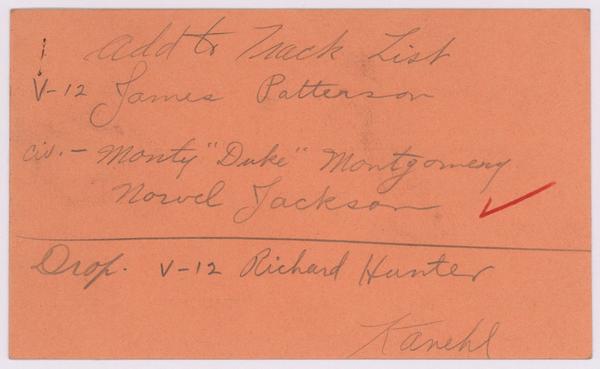 add to Track List
V-12 James Patterson
civ. - Monty "Duke" Montgomery
Norvel Jackson
Drop. V-12 Richard Hunter
Kanehl